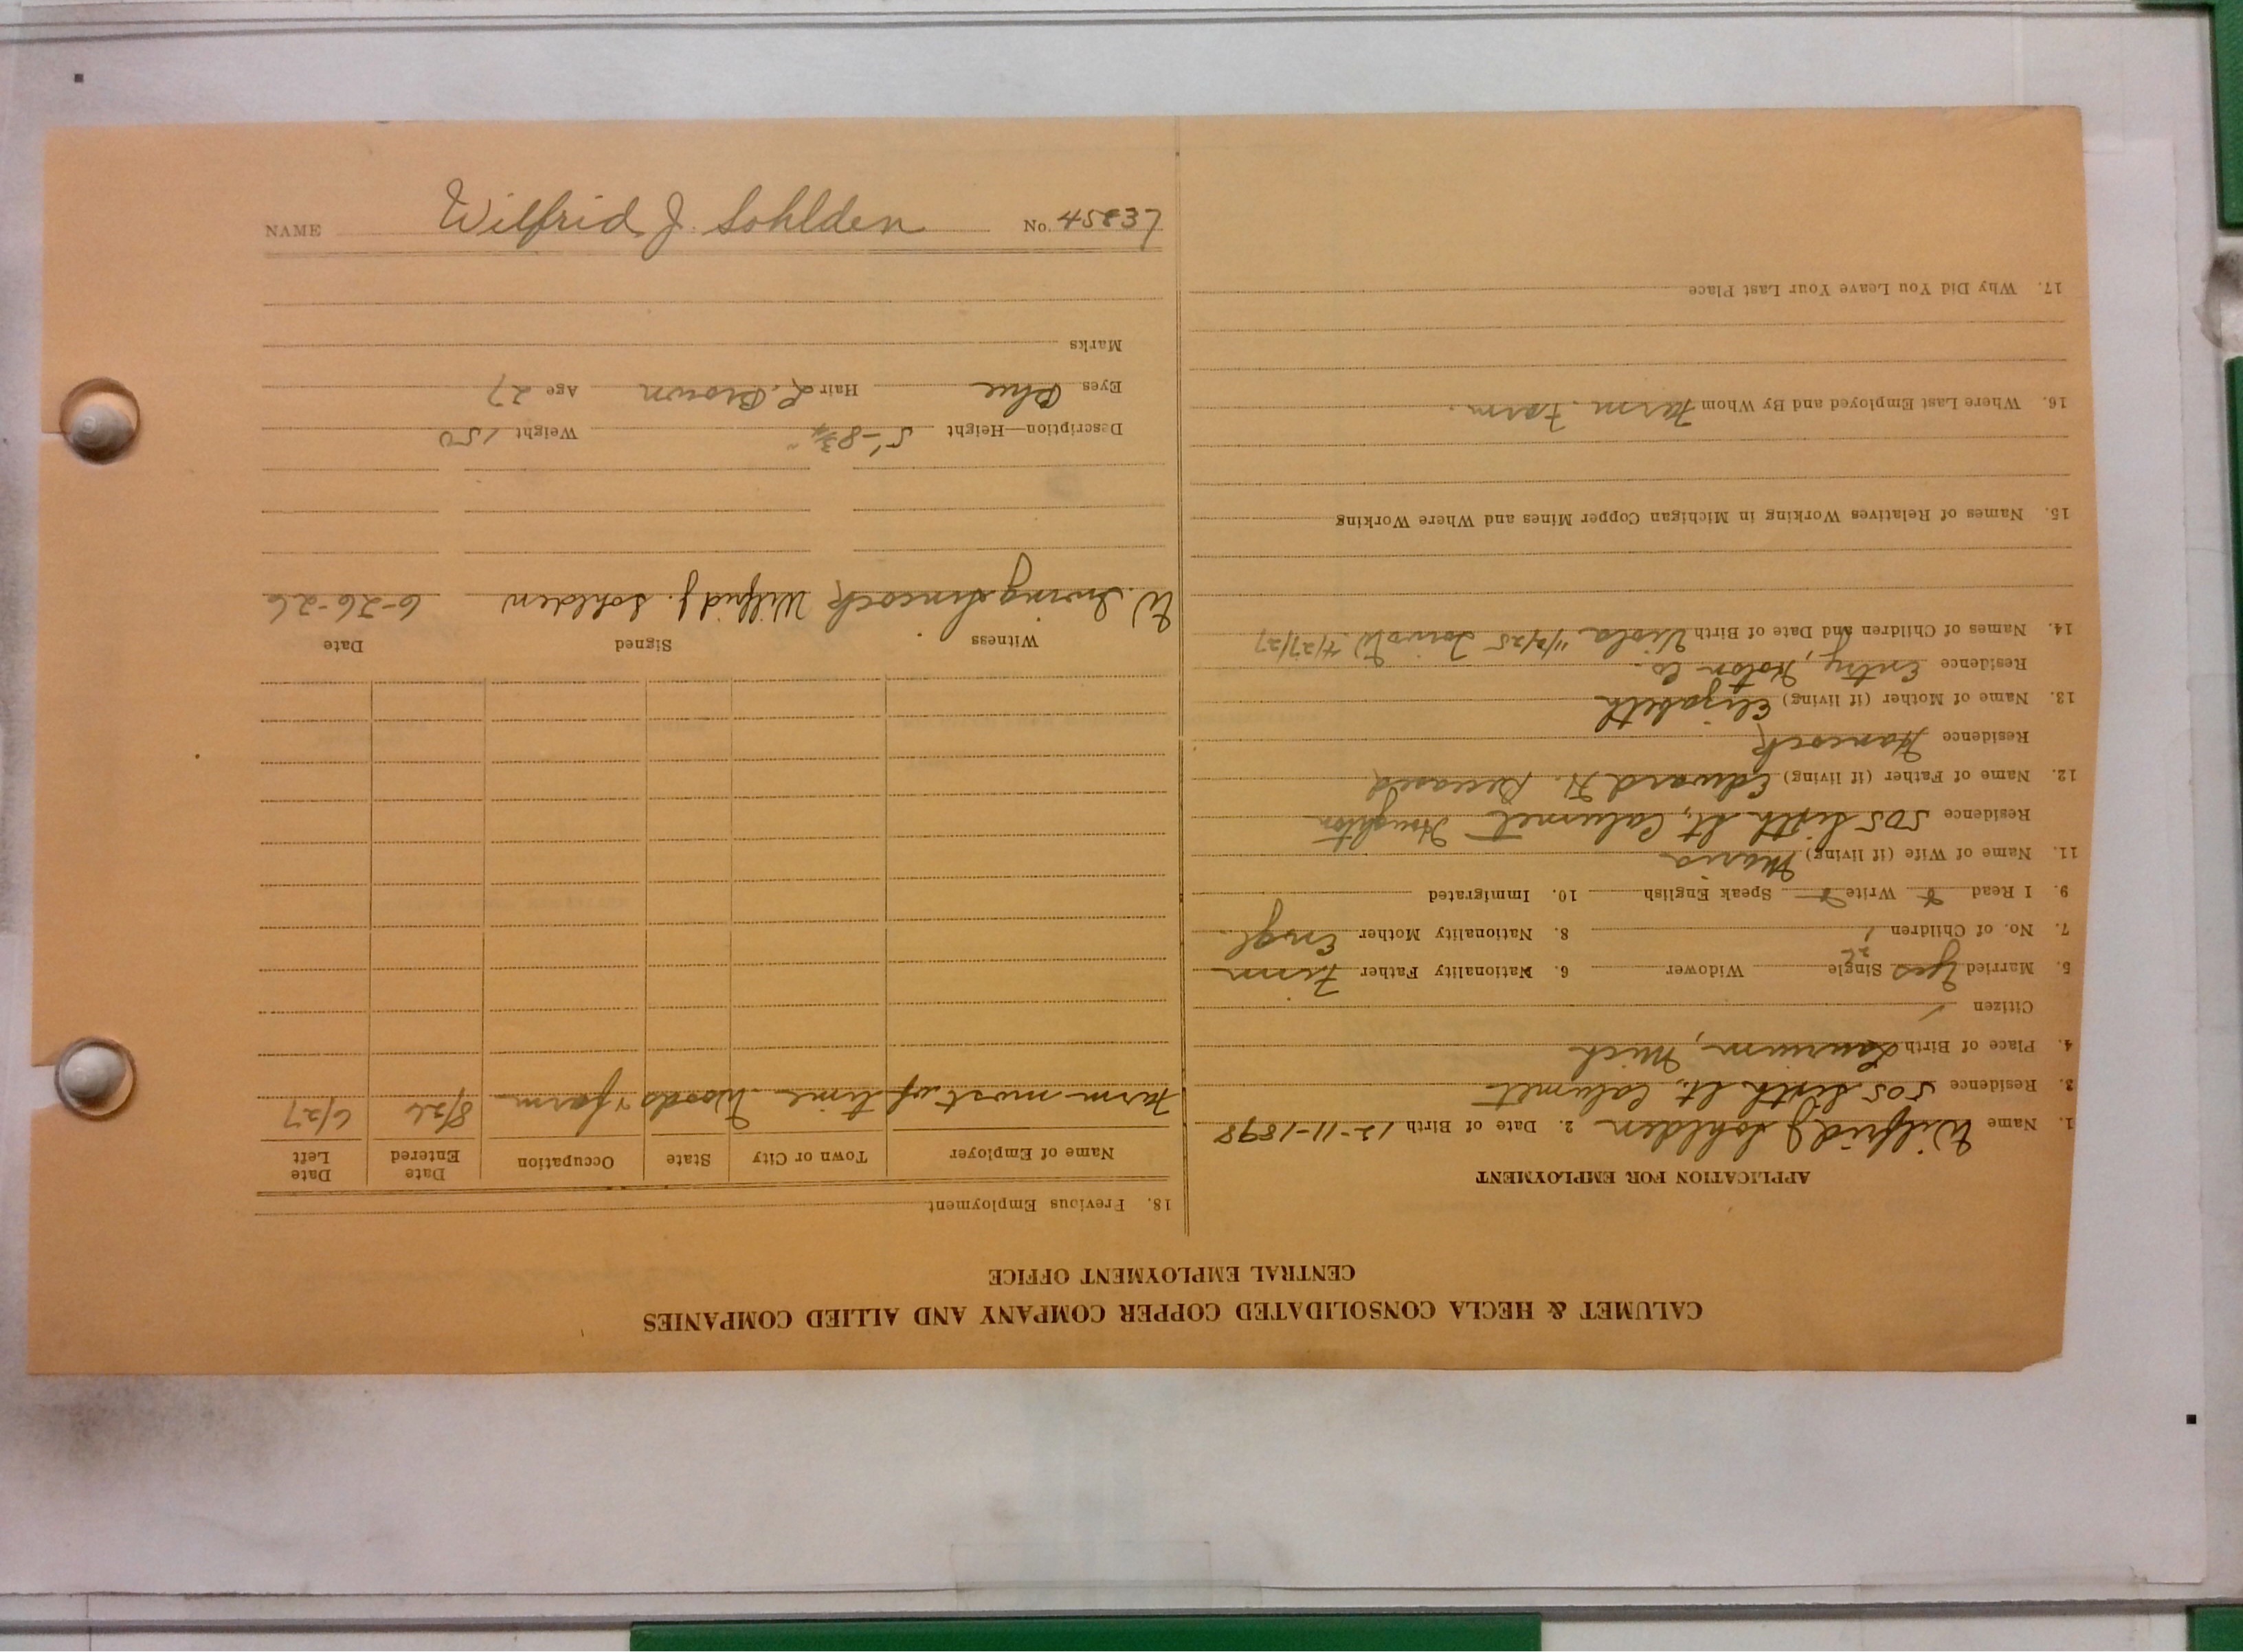 NAME Wilfrid J. Sohlden No. 45837
CALUMET & HECLA CONSOLIDATED COPPER COMPANY AND ALLIED COMPANIES
CENTRAL EMPLOYMENT OFFICE
APPLICATION FOR EMPLOYMENT
1. Name Wilfrid J Sohlden 2. Date of Birth 12-11-1898
3. Residence 505 Sixth St. Calumet
4. Place of Birth Laurium, Mich
Citizen /
5. Married Yes Single Widower 6. Nationality Father Finn
7. No. of Children 1 2 8. Nationality Mother Engl.
9. I Read Write Speak English 10. Immigrated
11. Name of Wife (if living) Maria
Residence 505 Sixth St, Calumet Houghton
12. Name of Father (if living) Edward H. Deceased
Residence Hancock
13. Name of Mother (if living) Elizabeth
Residence Entry, Hoton Co.
14. Names of Children and Date of Birth Viola 11/2/25 4/27/27
15. Names of Relatives Working in Michigan Copper Mines and Where Working
16. Where Last Employed and By Whom Farm. Farm.
17. Why Did You Leave Your Last Place
18. Previous Employment
Name of Employer Town or City State Occupation Date Entered Date Left
Farm most of time Woods & farm 8/26 6/27
Witness Signed Date
W. Irving Hancock Wilfrid J. Sohlden 6-26-26
Description—Height 5'-8 3/4" Weight 150
Eyes Blue Hair L. Brown Age 27
Marks